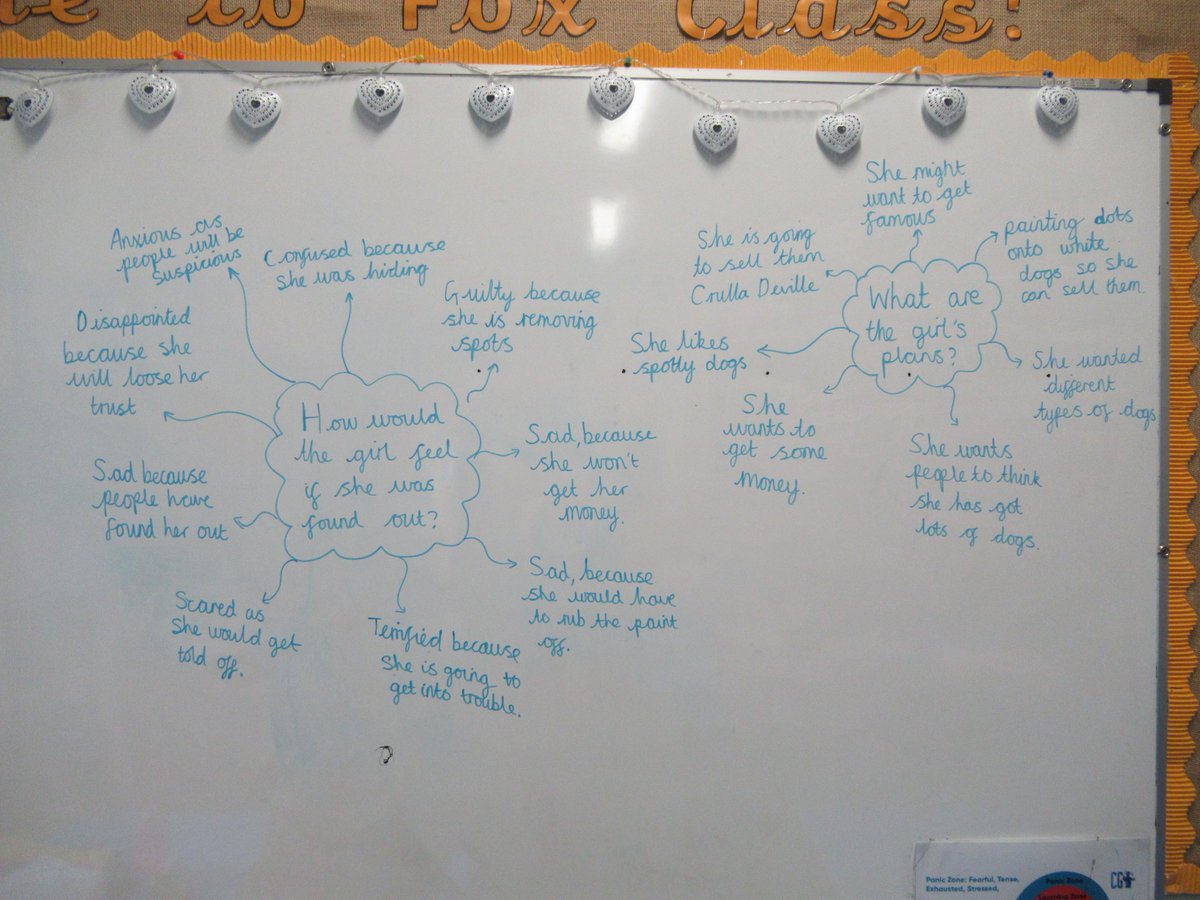 to Fox Class!
Anxious as
people will be
suspicious
Confused because
she was hiding
Guilty because
she is removing
spots
Disappointed
because she
will loose her
trust
How would
the girl feel
if she was
found out?
Sad, because
she won't
get her
money.
Sad because
people have
found her out
Sad, because
she would have
to rub the paint
off.
Scared as
she would get
told off.
Terrified because
she is going to
get into trouble.
She might
want to get
famous
She is going
to sell them
Crulla Deville
painting dots
onto white
dogs so she
can sell them.
What are
the girl's
plans?
She likes
spotty dogs
She wanted
different
types of dogs
She
wants to
get some
money.
She wants
people to think
she has got
lots of dogs.
Panic Zone: Fearful, Tense,
Exhausted, Stressed,
Panic Zone
Learning Zone
CG